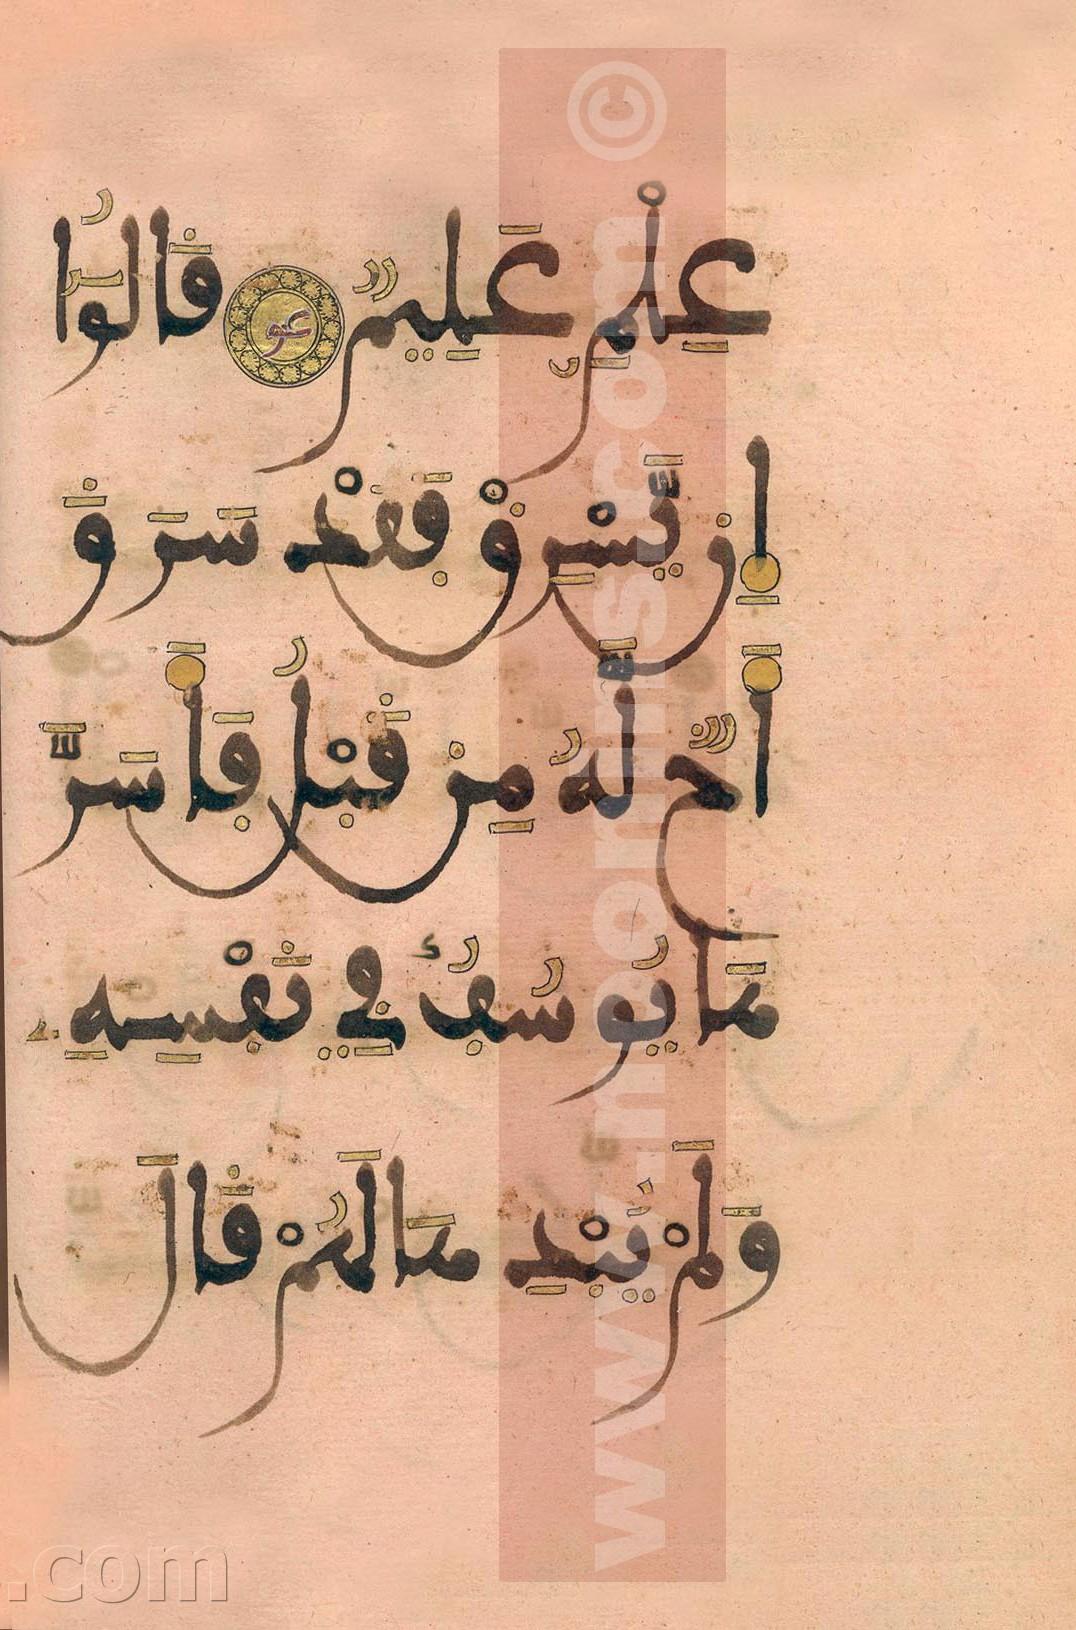 عِلْمٍ عَلِيمٌ عو قَالُوا
إِن يَّسْرِقْ فَقَدْ سَرَقَ
أَخٌ لَّهُ مِن قَبْلُ فَأَسَرَّ
هَا يُوسُفُ فِي نَفْسِهِ
وَلَمْ يُبْدِ هَا لَهُمْ قَالَ
.com